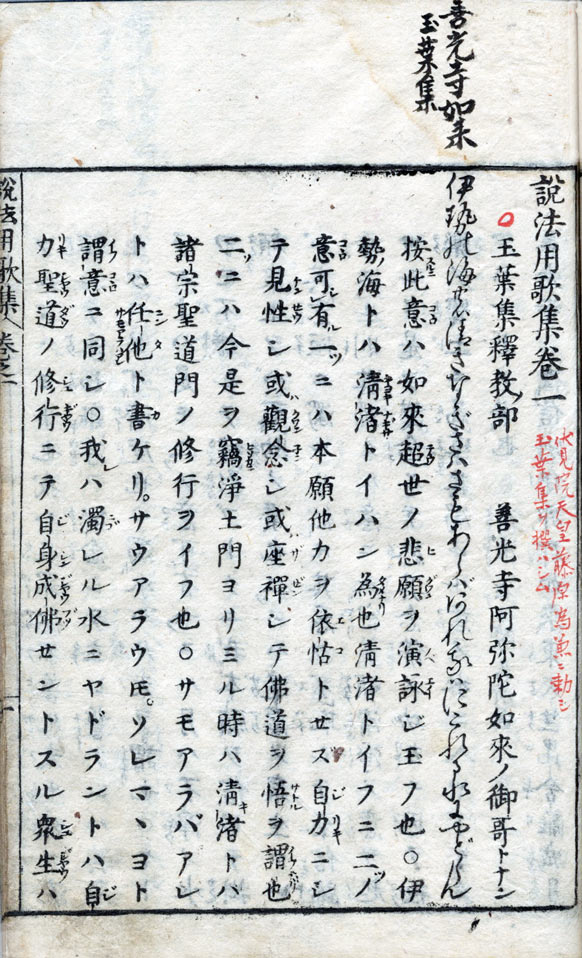 善光寺如来
玉葉集
説法用歌集巻一
玉葉集釋教部
伏見院天皇藤原為兼ニ勅シ
玉葉集ヲ撰ハシム
善光寺阿弥陀如来ノ御哥トナン
伊勢の海の清きなぎさはさもあらばあれ我はにごれる水にやどらん
按此意ハ如來超世ノ悲願ヲ演詠シ玉フ也〇伊
勢ノ海トハ淸渚トイハン為也淸渚トイフニ二ツノ
意可有一ツニハ本願他力ヲ依怙トセス自力ニシ
テ見性シ或觀念シ或座禪シテ佛道ヲ悟ヲ謂也
二ツニハ今是ヲ竊淨土門ヨリミル時ハ淸渚トハ
諸宗聖道門ノ修行ヲイフ也〇サモアラバアレ
トハ任他ト書ケリ。サウアラウ𪜈。ソレマヽヨト
謂意ニ同シ〇我レハ濁レル水ニヤドラントハ自
力聖道ノ修行ニテ自身成佛セントスル衆生ハ
説法用歌集 巻之一